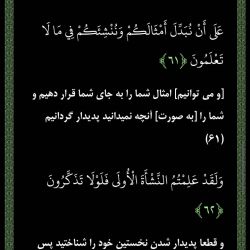 عَلَىٰ أَنْ نُبَدِّلَ أَمْثَالَكُمْ وَنُنْشِئَكُمْ فِي مَا لَا
تَعْلَمُونَ ﴿٦١﴾
[و می توانیم] امثال شما را به جای شما قرار دهیم و
شما را [به صورت] آنچه نمیدانید پدیدار گردانیم
(۶۱)
وَلَقَدْ عَلِمْتُمُ النَّشْأَةَ الْأُولَى فَلَوْلَا تَذَكَّرُونَ
﴿٦٢﴾
و قطعا پدیدار شدن نخستین خود را شناختید پس